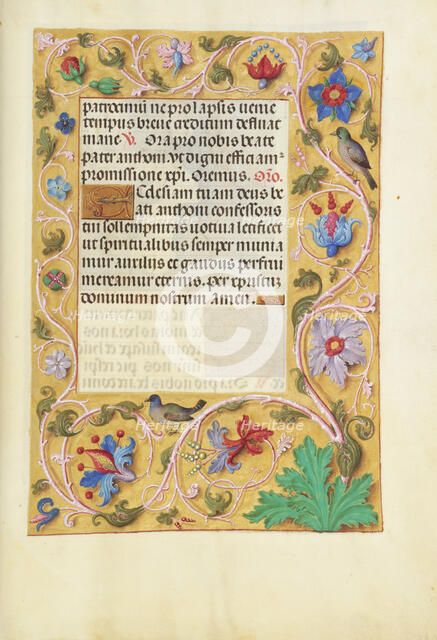 patrociniū ne prolapsis ueniæ
tempus breve creditum defluat
mane. V. Ora pro nobis beate
pater anthoni Vt digni effici am⁊
promissione xp̄i. Oremus. Orō.
Ecclesiam tuam deus be
ati anthoni confessoris
tui sollempnitas uotiua letificet
ut spiritualibus semper munia
mur auxiliis et gaudiis perfrui
mereamur eternis. per christum
dominum nostrum amen.
Heritage